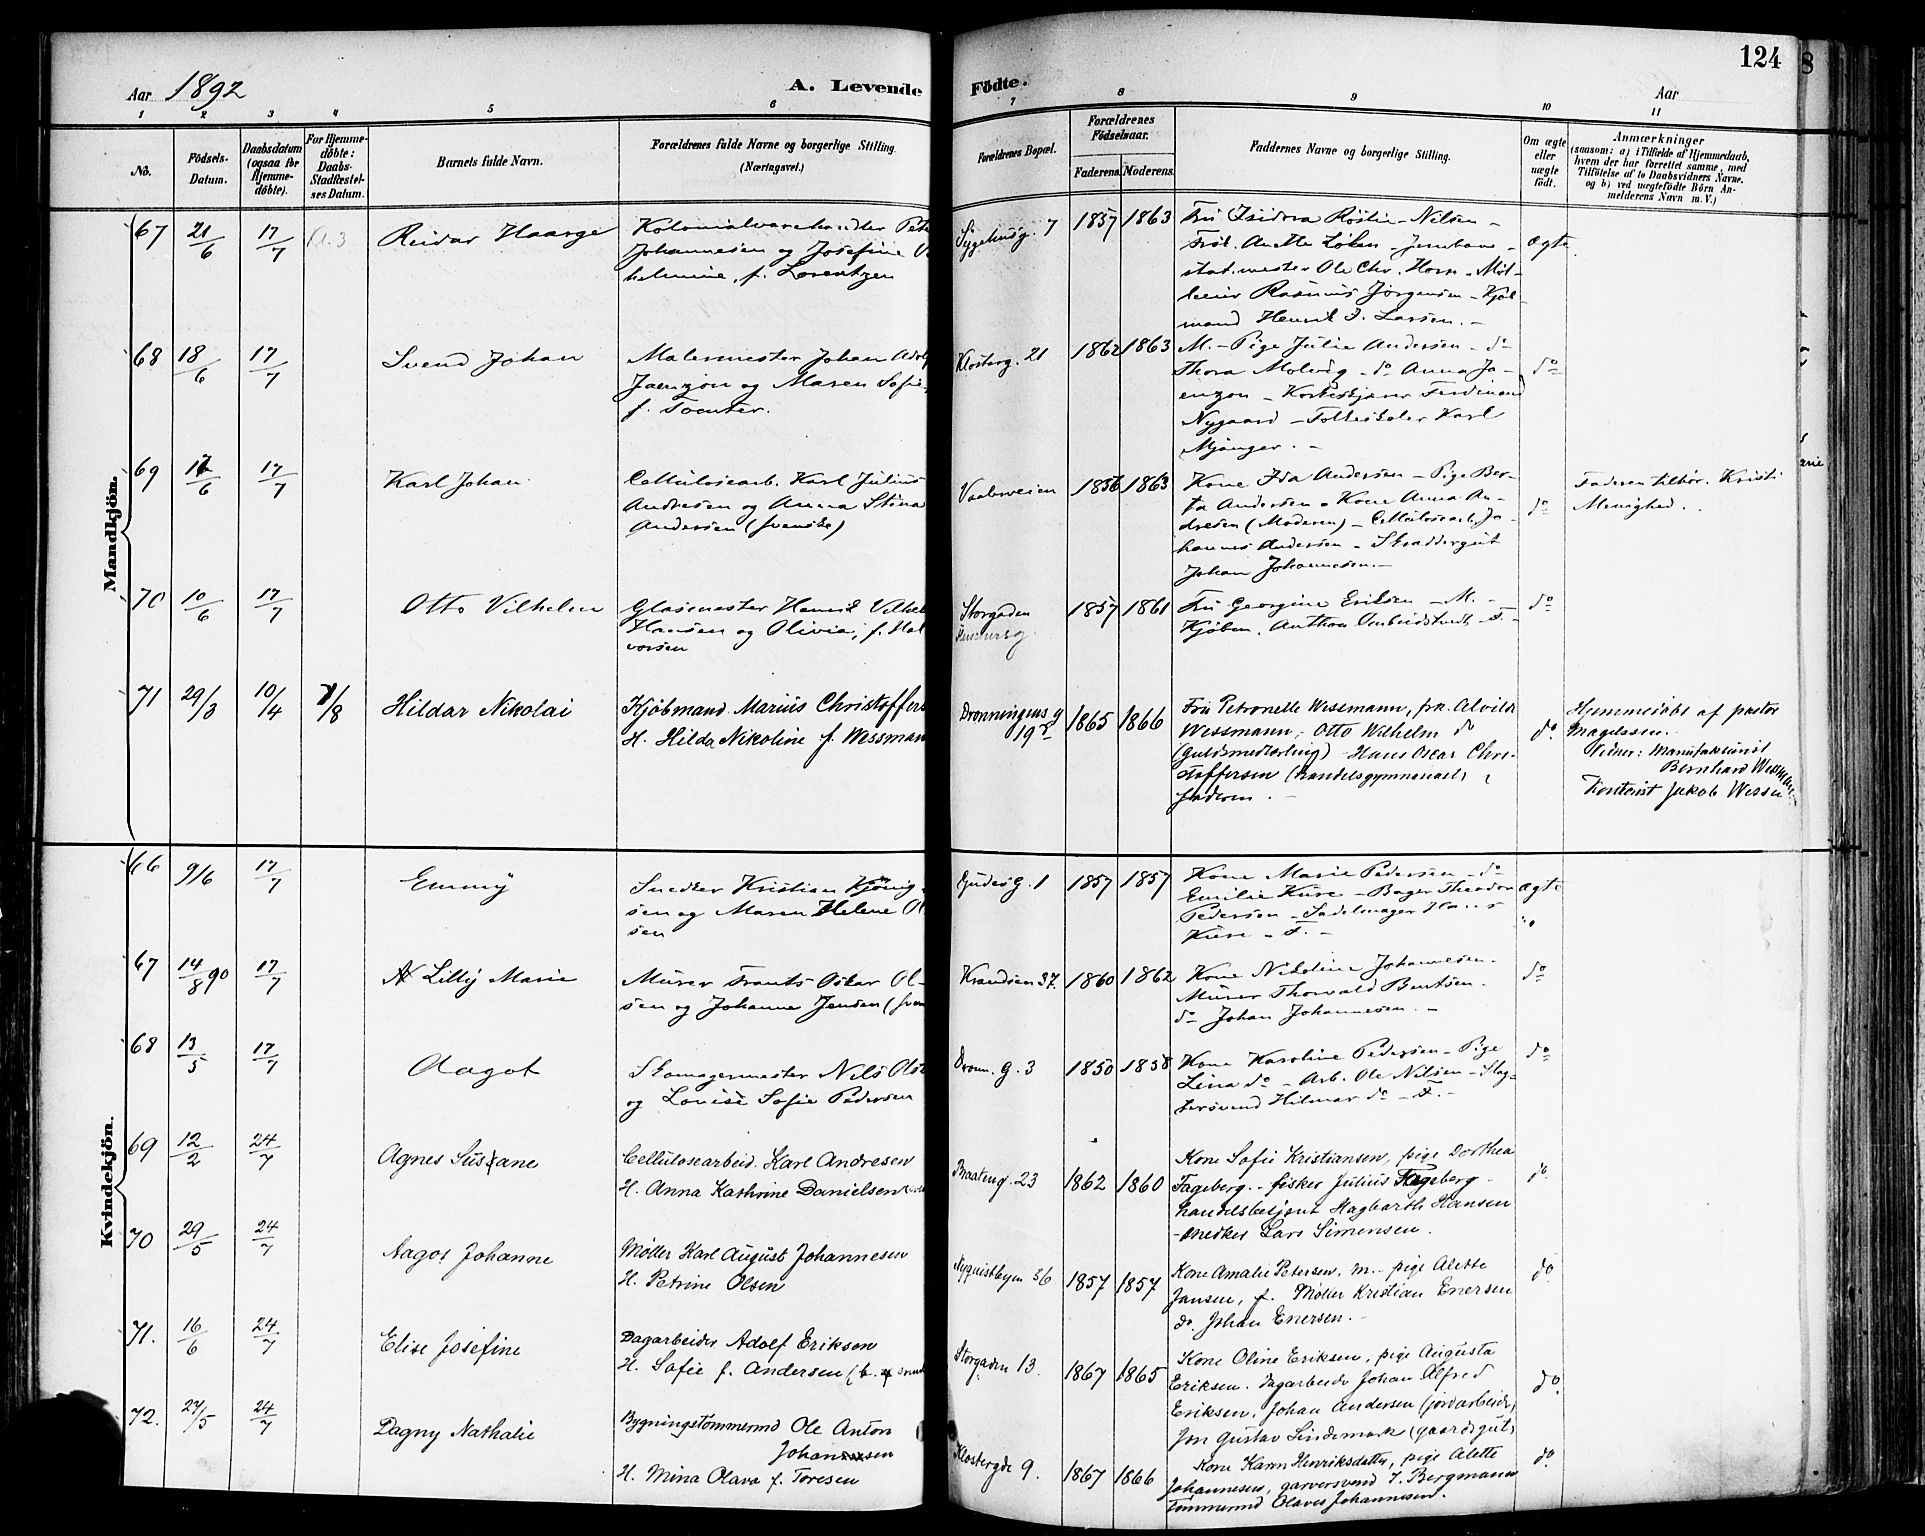 Aar 1892
A. Levende
Födte.
124
Aar
1 2 3 4 5 6 7 8 9 10 11
No.
Födsels-
Datum.
Daabsdatum
(ogsaa for
Hjemme-
döbte).
For Hjemme-
döbte:
Daabs-
Stadfæstel-
ses Datum.
Barnets fulde Navn.
Forældrenes fulde Navne og borgerlige Stilling
(Næringsvei.)
Forældrenes Bopæl.
Forældrenes
Födselsaar.
Faderens.
Moderens.
Faddernes Navne og borgerlige Stilling.
Om ægte
eller
uægte
födt.
Anmærkninger
(saasom: a) i Tilfælde af Hjemmedaab,
hvem der har forrettet samme, med
Tilföielse af to Daabsvidners Navne,
og b) ved uægtefödte Börn An-
melderens Navn m. V.)
Mandkjön.
67 21/6 17/7 Reidar Haarge
Johannesen og Josefine
helmine, f. Lorentzen
7 1857 1863
Fru Isidora Röstie-Nilsen -
Frök. Anette Löken - Jernbane-
stat.mester Ole Chr. Horn - Möl-
Rasmus Jörgensen - Kjöb-
mand Henrik J. Larsen. -
ægte
68 18/6 17/7 Svend Johan
Malermester Johan Adolf
Jaenzon og Maren Sofie,
f. Toenter.
Klosterg. 21 1862 1863
M. - Pige Julie Andersen - do
Thora Molvig - do Anna Ja-
enzon - Ferdinand
Nygaard - Karl
Mjanger. -
do
69 17/6 17/7 Karl Johan
Cellulosearb. Karl Julius
Andresen og Anna Stina
Andersen (svenske)
1856 1863
Kone Ida Andersen - Pige Ber-
ta Andersen - Kone Anna An-
dresen (Moderen) - Cellulosearb. Jo-
hannes Andersen - Skräddergut
Johan Johannesen. -
do
Faderen tilhör. Kristi
Menighed.
70 10/6 17/7 Otto Vilhelm
Glasmester Henrik Vilhel
Hansen og Olivia, f. Hal
vorsen
Storgaden
1857 1861
Fru Georgine Eriksen - M. -
Kjöbm. Anthon - F. -
do
71 29/3 10/4 7/8 Hildar Nikolai
Kjöbmand Marius Christoffers
H. Hilda Nikoline f. Wessman
Dronningensg
19 1865 1866
Fru Petronelle Wessmann, frk. Alvilde
Wessmann, Otto Wilhelm do
(Guldsmedlærling) - Hans Oscar Chri-
stoffersen (handelsgymnasiast)
faderen. -
do
Hjemmedöbt af pastor
Magelssen. -
Vidner: Manufakturist
Bernhard Wessman
Kontorist Jakob Wessm
Kvindekjön.
66 9/6 17/7 Emmy
Snedker Kristian Kjönig-
sen og Maren Helene Ol
sen
Gudesg. 1 1857 1857
Kone Marie Pedersen - do
Emilie Kure - Bager Theodor
Pedersen - Sadelmager Hans
Kure - F. -
ægte
67 14/8 90 17/7 Lilly Marie
Murer Frants Oskar Ol-
sen og Johanne Jensen (sven
37. 1860 1862
Kone Nikoline Johannesen -
Murer Thorvald Bentsen.
do Johan Johannesen. -
do
68 13/5 17/7 Aagot
Skomagermester Nils Ols
og Lovise Sofie Pedersen
Dronn. g. 3 1850 1858
Kone Karoline Pedersen - Pige
Lina do - Arb. Ole Nilsen - Slag-
tersvend Hilmar do - F. -
do
69 12/2 24/7 Agnes Susane
Cellulosearbeid. Karl Andresen
H. Anna Kathrine Danielsen
Braateng. 23 1862 1860
Kone Sofie Kristiansen, pige Dorthea
Fageberg. - fisker Julius Fageberg -
handelsbetjent Hagbarth Hansen
- snedker Lars Simensen.
do
70 29/5 24/7 Aagot Johanne
Möller Karl August Johannesen
H. Petrine Olsen
Nyquistbyen 36 1857 1857
Kone Amalie Petersen, m. - pige Alette
Jansen, f. Möller Kristian Enersen
do. Johan Enersen. -
do
71. 16/6 24/7 Elise Josefine
Dagarbeider Adolf Eriksen
H. Sofie f. Andersen
Storgaden 13. 1867 1865
Kone Oline Eriksen, pige Augusta
Eriksen. Dagarbeide Johan Alfred
Eriksen, Johan Andersen (jordarbeide)
Jon Gustav Lindemark (gaardsgut)
do
72. 27/5 24/7 Dagny Nathalie
Bygningstömmermd Ole Anton
Johansen
H. Mina Olava f. Toresen
Klostergde 9. 1867 1866
Kone Karen Henriksdatter, pige Alette
Johannesen, garversvend J. Bergmann
Tömmermd Olaves Johannesen.
do